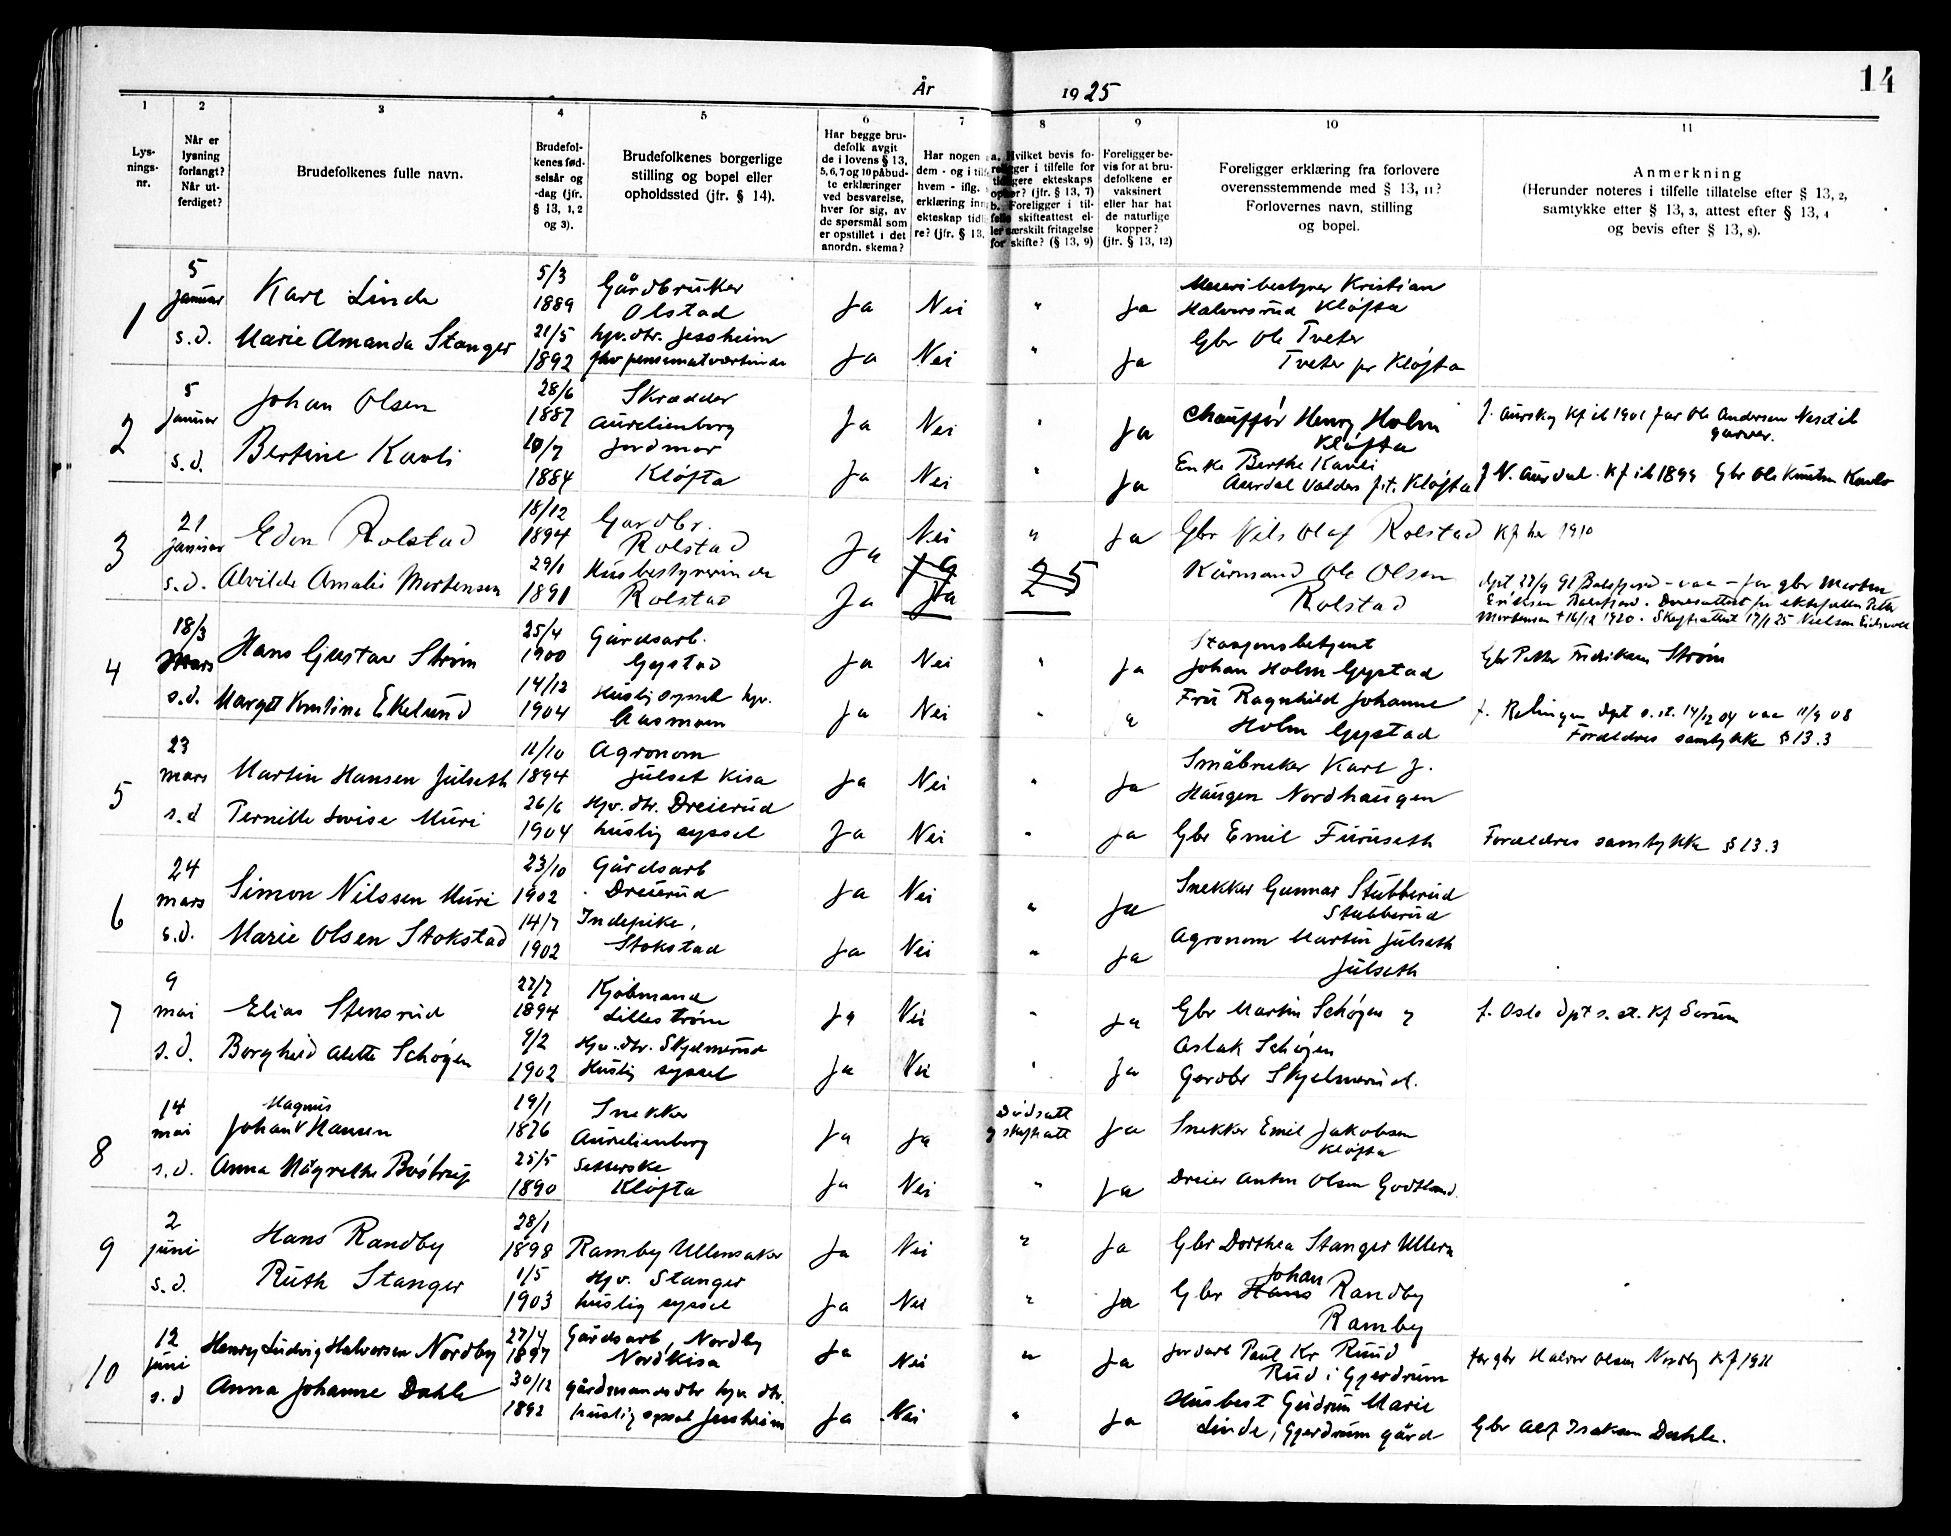 14
År 1925
1 2 3 4 5 6 7 8 9 10 11
Lys-
nings-
nr.
Når er
lysning
forlangt?
Når ut-
ferdiget?
Brudefolkenes fulle navn.
Brudefol-
kenes fød-
selsår og
-dag (jfr.
§ 13, 1, 2
og 3).
Brudefolkenes borgerlige
stilling og bopel eller
opholdssted (jfr. § 14).
Har begge bru-
defolk avgit
de i lovens § 13,
5, 6, 7 og 10 påbud-
te erklæringer
ved besvarelse,
hver for sig, av
de spørsmål som
er opstillet i det
anordn. skema?
Har nogen a
dem - og i tilf
hvem - iflg.
erklæring inn
ekteskap tidl
re? (jfr. § 13,
a. Hvilket bevis fo-
religger i tilfelle for
tidligere ekteskaps
ophør? (jfr. § 13, 7)
b. Foreligger i til-
felle skifteattest el-
ler særskilt fritagelse
for skifte? (§ 13, 9)
Foreligger be-
vis for at bru-
defolkene er
vaksinert
eller har hat
de naturlige
kopper?
(jfr. § 13, 12)
Foreligger erklæring fra forlovere
overensstemmende med § 13, 11?
Forlovernes navn, stilling
og bopel.
Anmerkning
(Herunder noteres i tilfelle tillatelse efter § 13, 2,
samtykke efter § 13, 3, attest efter § 13, 4
og bevis efter § 13, 8).
1 5 januar Karl Linde 5/3 1889 Gårdbruker Olstad Ja Nei " Ja Meieribestyrer Kristian
Halvorsrud Kløfta
s.d. Marie Amanda Stanger 21/5 1892 hjv. dtr. Jessheim Ja Nei " Ja Gbr Ole Tveter
Tveter pr Kløfta
2 5 januar Johan Olsen 28/6 1887 Skrædder Aurelienborg Ja Nei " Ja Chauffør Henry Holm
Kløfta f. Aurskog Kf il 1901 far Ole Andersen
s.d. Bertine Kavli /7 1884 Jordmor Kløfta Ja Nei " Ja Enke Berthe Kavli
Aurdal Valdres p.t. Kløfta f N. Aurdal. Kf ib 1899 Gbr Ole Knutsen
3 21 januar Edon Rolstad 18/12 1894 Gardbr. Rolstad Ja Nei " Ja Gbr Nils Olaf Rolstad Kf her 1910
s.d. Alvilde Amalie Mortensen 29/1 1891 Husbestyrerinde Rolstad Ja Ja 25 Kårmand Ole Olsen
Rolstad
dpt 27/9 91 Balsfjord - vac - far gbr Morten
Eriksen Balsfjord. Dødsattest for ektefellen Peter
Mortensen † 16/12 1920. Skifteattest 17/1 25 Nielsen Eidsvoll
4 18/3 Mars Hans Gustav Strøm 25/4 1900 Gårdsarb. Gystad Ja Nei " Ja Stasjonsbetjent
Johan Holm Gystad Gbr Petter Fredriksen Strøm
s.d. Margit Ekelund 14/12 1904 Huslig syssel hjv. Aasmoen Ja Nei " " Fru Ragnhild Johanne
Holm Gystad f. Rælingen dpt s.st. 14/12 04 vac 11/9 08
Forældres samtykke § 13.3
5 23 mars Martin Hansen Julseth 11/10 1894 Agronom Julset Kisa Ja Nei " Ja Småbruker Karl J.
Haugen Nordhaugen
s.d Pernille Lovise Muri 26/6 1904 Hjv. dtr. Dreierud huslig syssel Ja Nei " Ja Gbr Emil Furuseth Forældres samtykke § 13.3
6 24 mars Simon Nilssen Muri 23/10 1902 Gårdsarb Dreierud Ja Nei " Ja Snekker Gunnar Stubberud
Stubberud
s.d. Marie Olsen Stokstad 14/7 1902 Indepike, Stokstad Ja Nei " Ja Agronom Martin Julseth
Julseth
7 9 mai Elias Stensrud 27/7 1894 Kjøbmand Lillestrøm Ja Nei " Ja Gbr Martin Schøyen og f. Oslo dpt s.st. Kf Sørum
s.d. Borghild Alette Schøyen 9/2 1902 Hjv. dtr. Skjelmerud Huslig syssel Ja Nei " Ja Aslak Schøyen
Gardbr Skjelmerud.
8 14 mai Johan Magnus Hansen 19/1 1876 Snekker Aurelienborg Ja Ja Dødsatt og skifteatt Ja Snekker Emil Jakobsen
Kløfta
s.d. Anna Margrethe Bøstrup 25/5 1890 Kløfta Ja Nei " Ja Dreier Anton Olsen Godtland
9 2 juni Hans Randby 28/1 1898 Ramby Ullensaker Ja Nei " Ja Gbr Dorthea Stanger Ullern
s.d. Ruth Stanger 1/5 1903 Hjv. Stanger huslig syssel Ja Nei " Ja Gbr Hans Johan Randby
Ramby
10 12 juni Henry Ludvig Halvorsen Nordby 27/4 1897 Gårdsarb, Nordby Nordkisa Ja Nei " Ja Jordarb Paul Kr Ruud
Rud i Gjerdrum far gbr Halvor Olsen Nordby Kf 1911
s.d Anna Johanne Dahle 30/12 1892 gårdmandsdtr hjv. dtr. huslig syssel Jessheim Ja Nei " Ja Husbest Gudrun Marie
Linde, Gjerdrum gård Gbr Alf Isaksen Dahle.